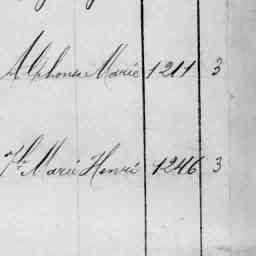 Alphonse Marie 1211 3
Marie Henri 1246 3